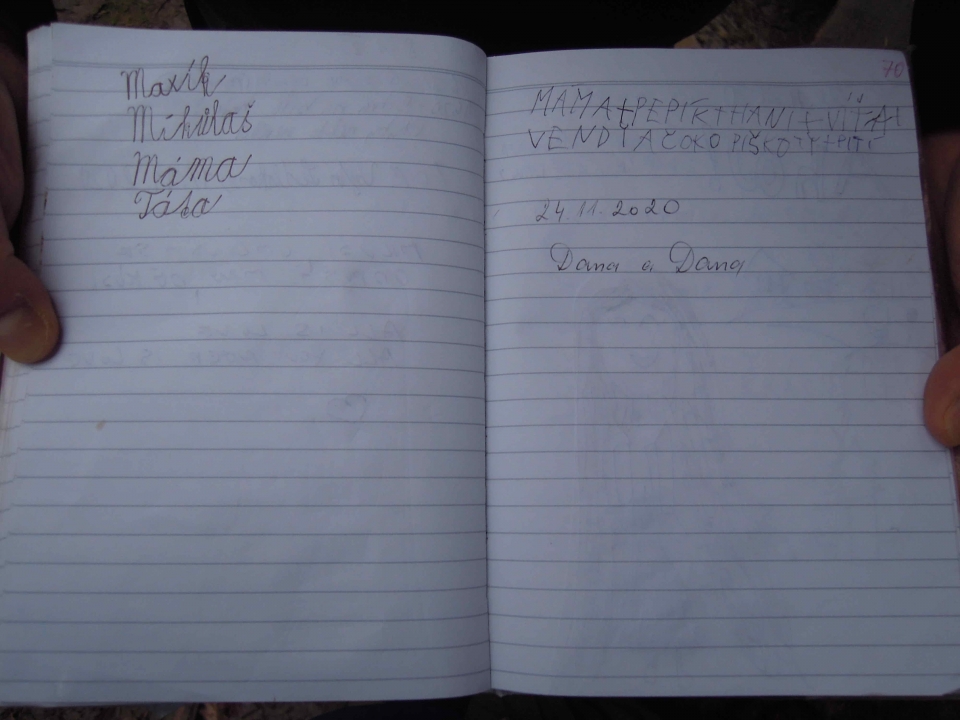 Maxík
Mikuláš
Máma
Táta
70
MAMA+PEPÍK+HANI+VÍŤA+
VENDY A ČOKO PIŠKOTY+PITÍ
24.11.2020
Dana a Dana